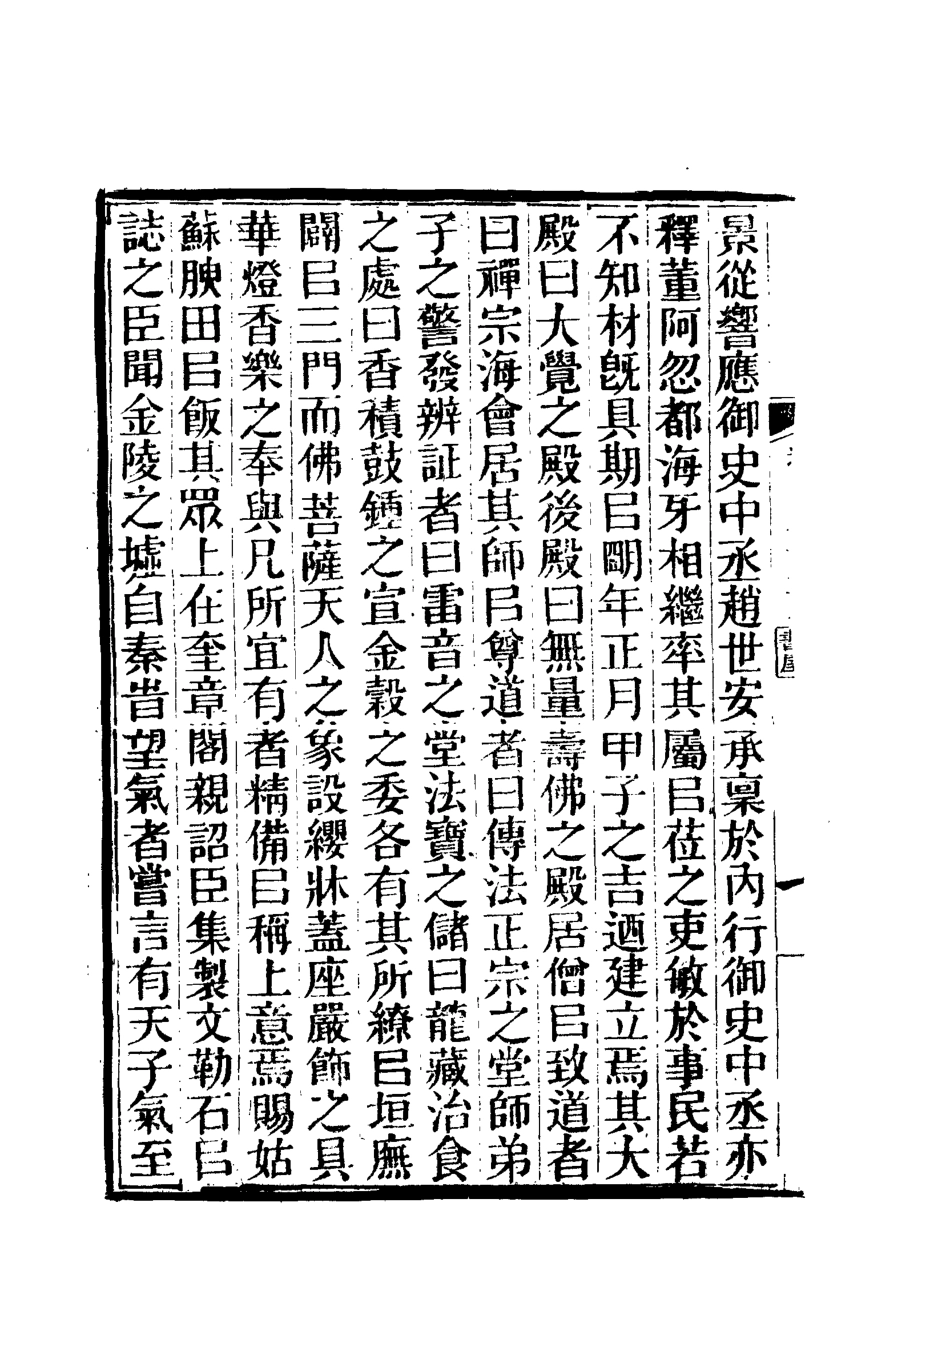 景從響應御史中丞趙世安承稟於內行御史中丞亦
釋董阿忽都海牙相繼率其屬㠯莅之吏敏於事民若
不知材旣具期㠯明年正月甲子之吉迺建立焉其大
殿曰大覺之殿後殿曰無量壽佛之殿居僧㠯致道者
曰禪宗海會居其師㠯尊道者曰傳法正宗之堂師弟
子之警發辨証者曰雷音之堂法寶之儲曰龍藏治食
之處曰香積鼓鍾之宣金穀之委各有其所繚㠯垣廡
闢㠯三門而佛菩薩天人之象設纓牀蓋座嚴飾之具
華燈香樂之奉與凡所宜有者精備㠯稱上意焉賜姑
蘇腴田㠯飯其眾上在奎章閣親詔臣集製文勒石㠯
誌之臣聞金陵之墟自秦旹望氣者嘗言有天子氣至
書屋